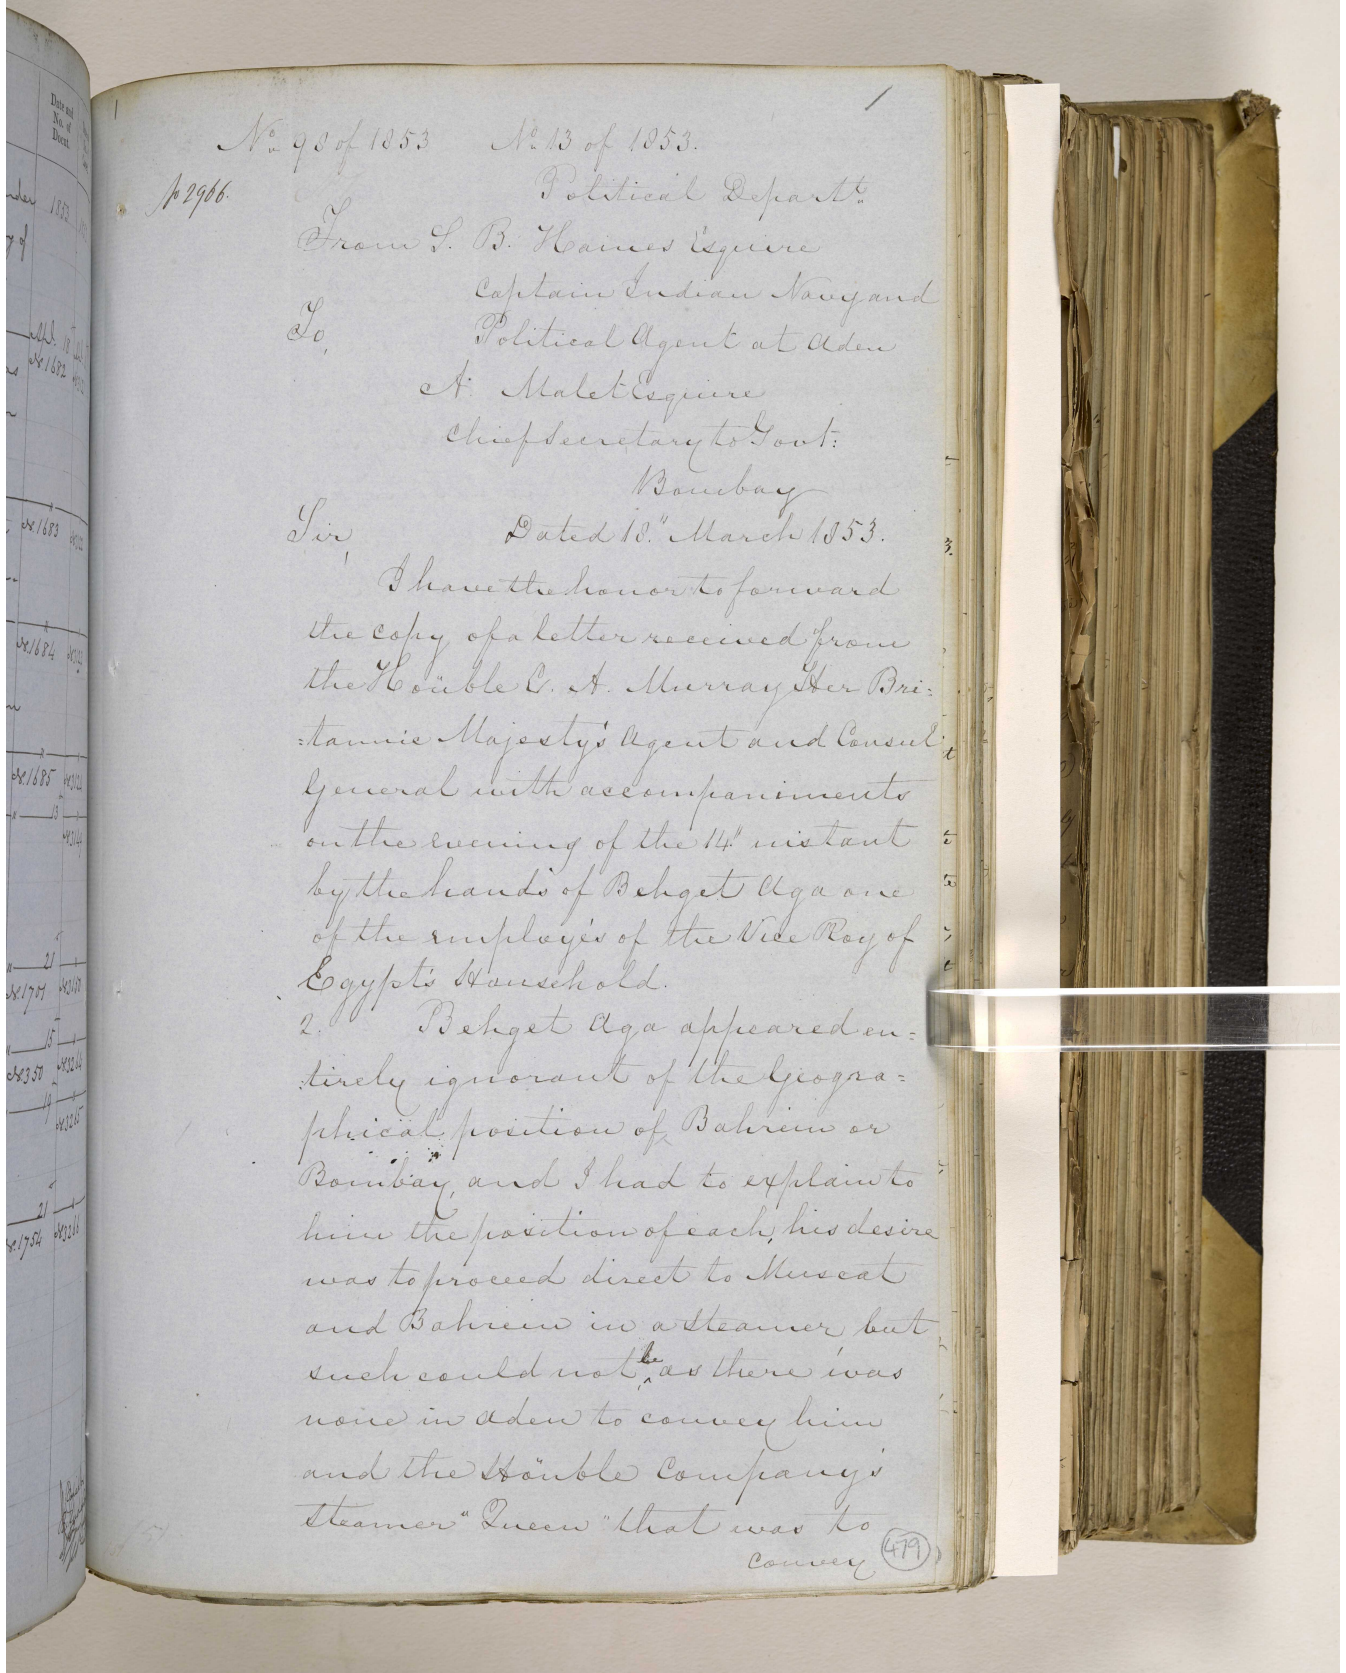 1
No. 98 of 1853 No. 13 of 1853.
p 2966.
Political Departt.
From S. B. Haines Esquire
Captain Indian Navy and
To,
Political Agent at Aden
A. Malet Esquire
Chief Secretary to Govt:
Bombay
Sir, Dated 18." March 1853.
I have the honor to forward
the copy of a letter received from
the Hoñble C. A. Murray Her Bri=
=tannic Majesty's Agent and Consul
General with accompaniments
on the evening of the 14" instant
by the hands of Behget Aga one
of the employés of the Vice Roy of
Egypt's Household.
2. Behget Aga appeared en=
=tirely ignorant of the Geogra=
phical position of Bahrein or
Bombay, and I had to explain to
him the position of each, his desire
was to proceed direct to Muscat
and Bahrein in a steamer but
such could not be as there was
none in Aden to convey him
and the Hoñble Company's
Steamer "Queen" that was to
convey
479
Date and
No. of
Docmt.
1853
№1682
№1683
№1684
№1685
21
№1701
15
№350
19
21
№1754